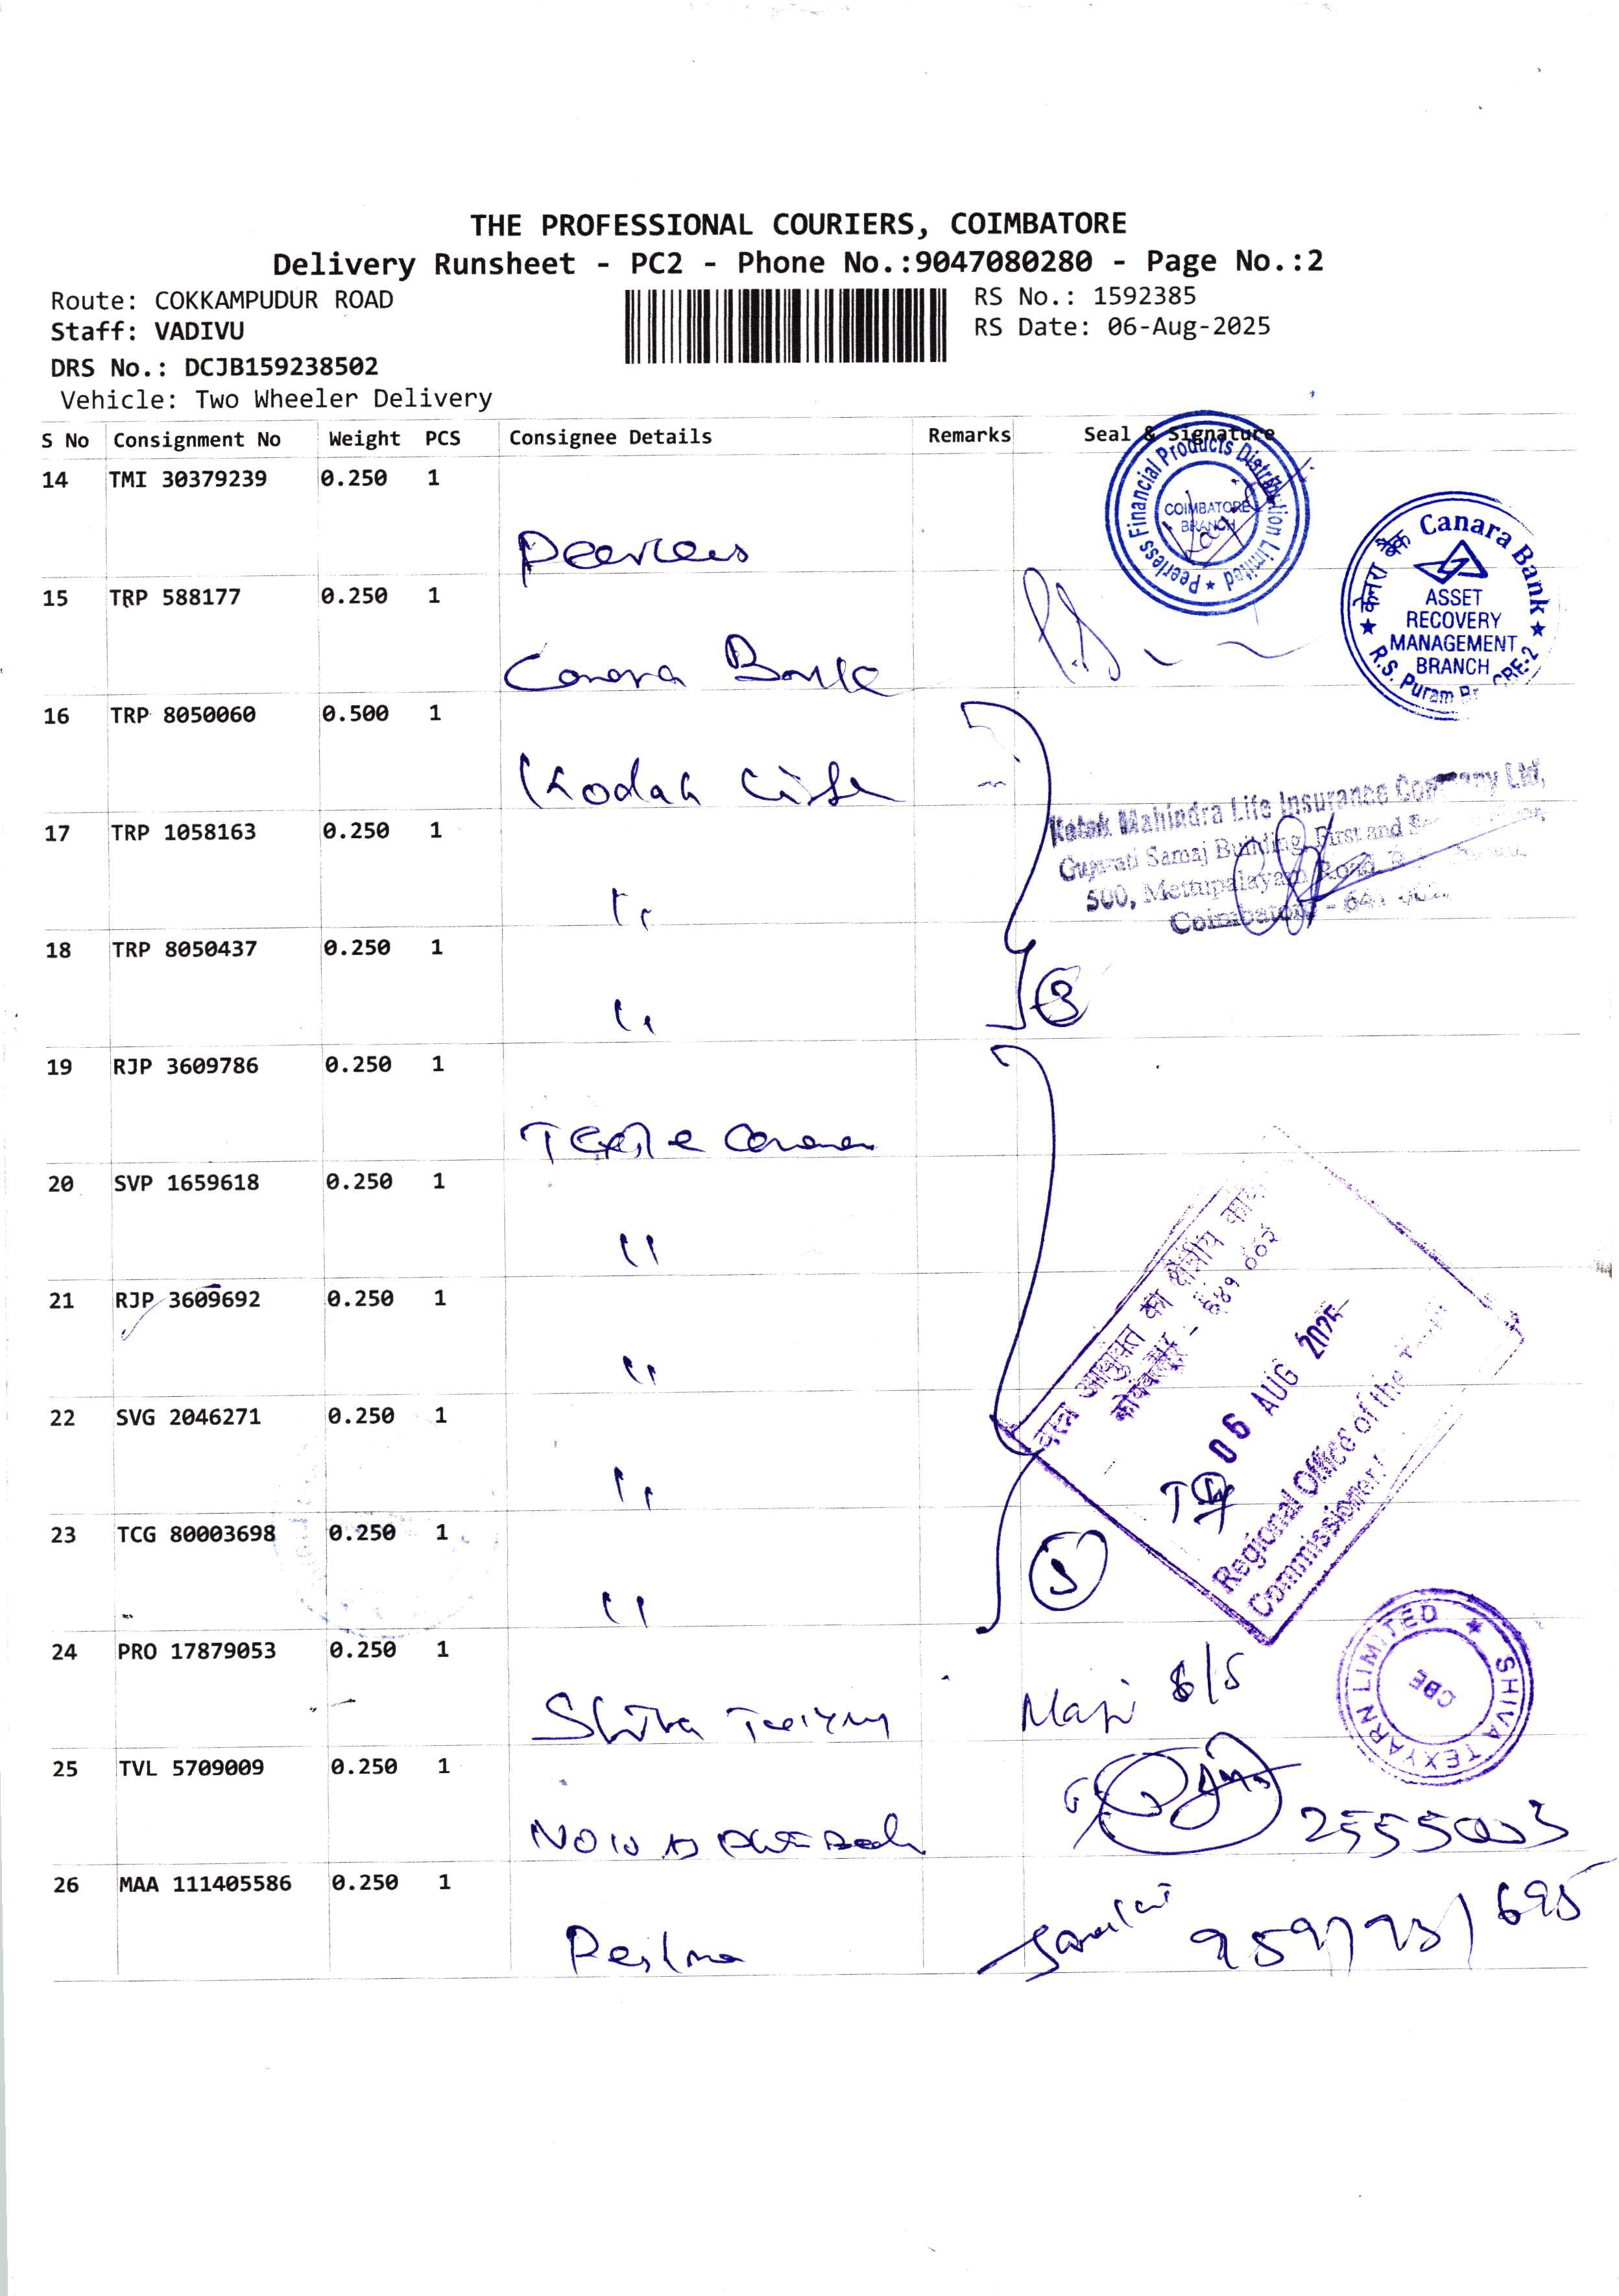 THE PROFESSIONAL COURIERS, COIMBATORE
Delivery Runsheet - PC2 - Phone No.:9047080280 - Page No.:2
Route: COKKAMPUDUR ROAD
Staff: VADIVU
DRS No.: DCJB159238502
Vehicle: Two Wheeler Delivery
RS No.: 1592385
RS Date: 06-Aug-2025
S No Consignment No Weight PCS Consignee Details Remarks Seal & Signature
14 TMI 30379239 0.250 1
Peerless
Peerless Financial Products Distribution Limited ★
COIMBATORE
BRANCH
15 TRP 588177 0.250 1
Canara Bank
केनरा बैंक Canara Bank
ASSET
RECOVERY
MANAGEMENT
BRANCH
★ R.S. Puram Br CBE-2 ★
16 TRP 8050060 0.500 1
Kodak Life
Kotak Mahindra Life Insurance Company Ltd,
Gujarati Samaj Building, First and
500, Mettupalayam Road,
Coimbatore - 641
17 TRP 1058163 0.250 1
"
18 TRP 8050437 0.250 1
"
3
19 RJP 3609786 0.250 1
Textile
20 SVP 1659618 0.250 1
"
21 RJP 3609692 0.250 1
"
22 SVG 2046271 0.250 1
"
23 TCG 80003698 0.250 1
"
5
वस्त्र आयुक्त का क्षेत्रीय
कोयंबतूर - ६४१ ००२
06 AUG 2025
Regional Office of the
Commissioner
24 PRO 17879053 0.250 1
Shiva Texyarn
SHIVA TEXYARN LIMITED ★
CBE
25 TVL 5709009 0.250 1
2555003
26 MAA 111405586 0.250 1